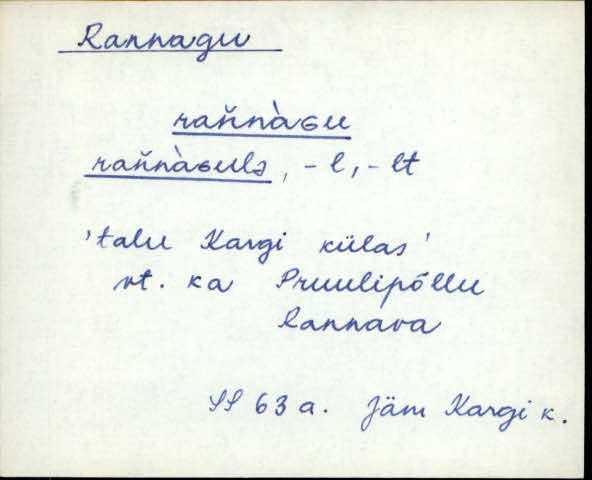 Rannagu
rañnàɢu
rañnàɢulᴈ, -l, -lt
'talu Kargi külas'
vt. ka Pruulipõllu
Rannava
SS 63 a. Jäm Kargi k.